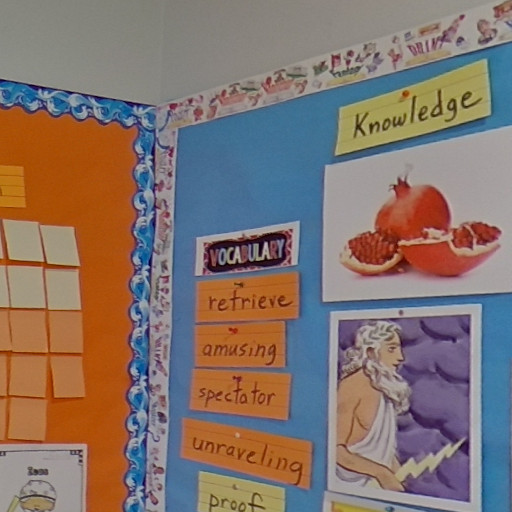 Knowledge
VOCABULARY
retrieve
amusing
spectator
unraveling
proof